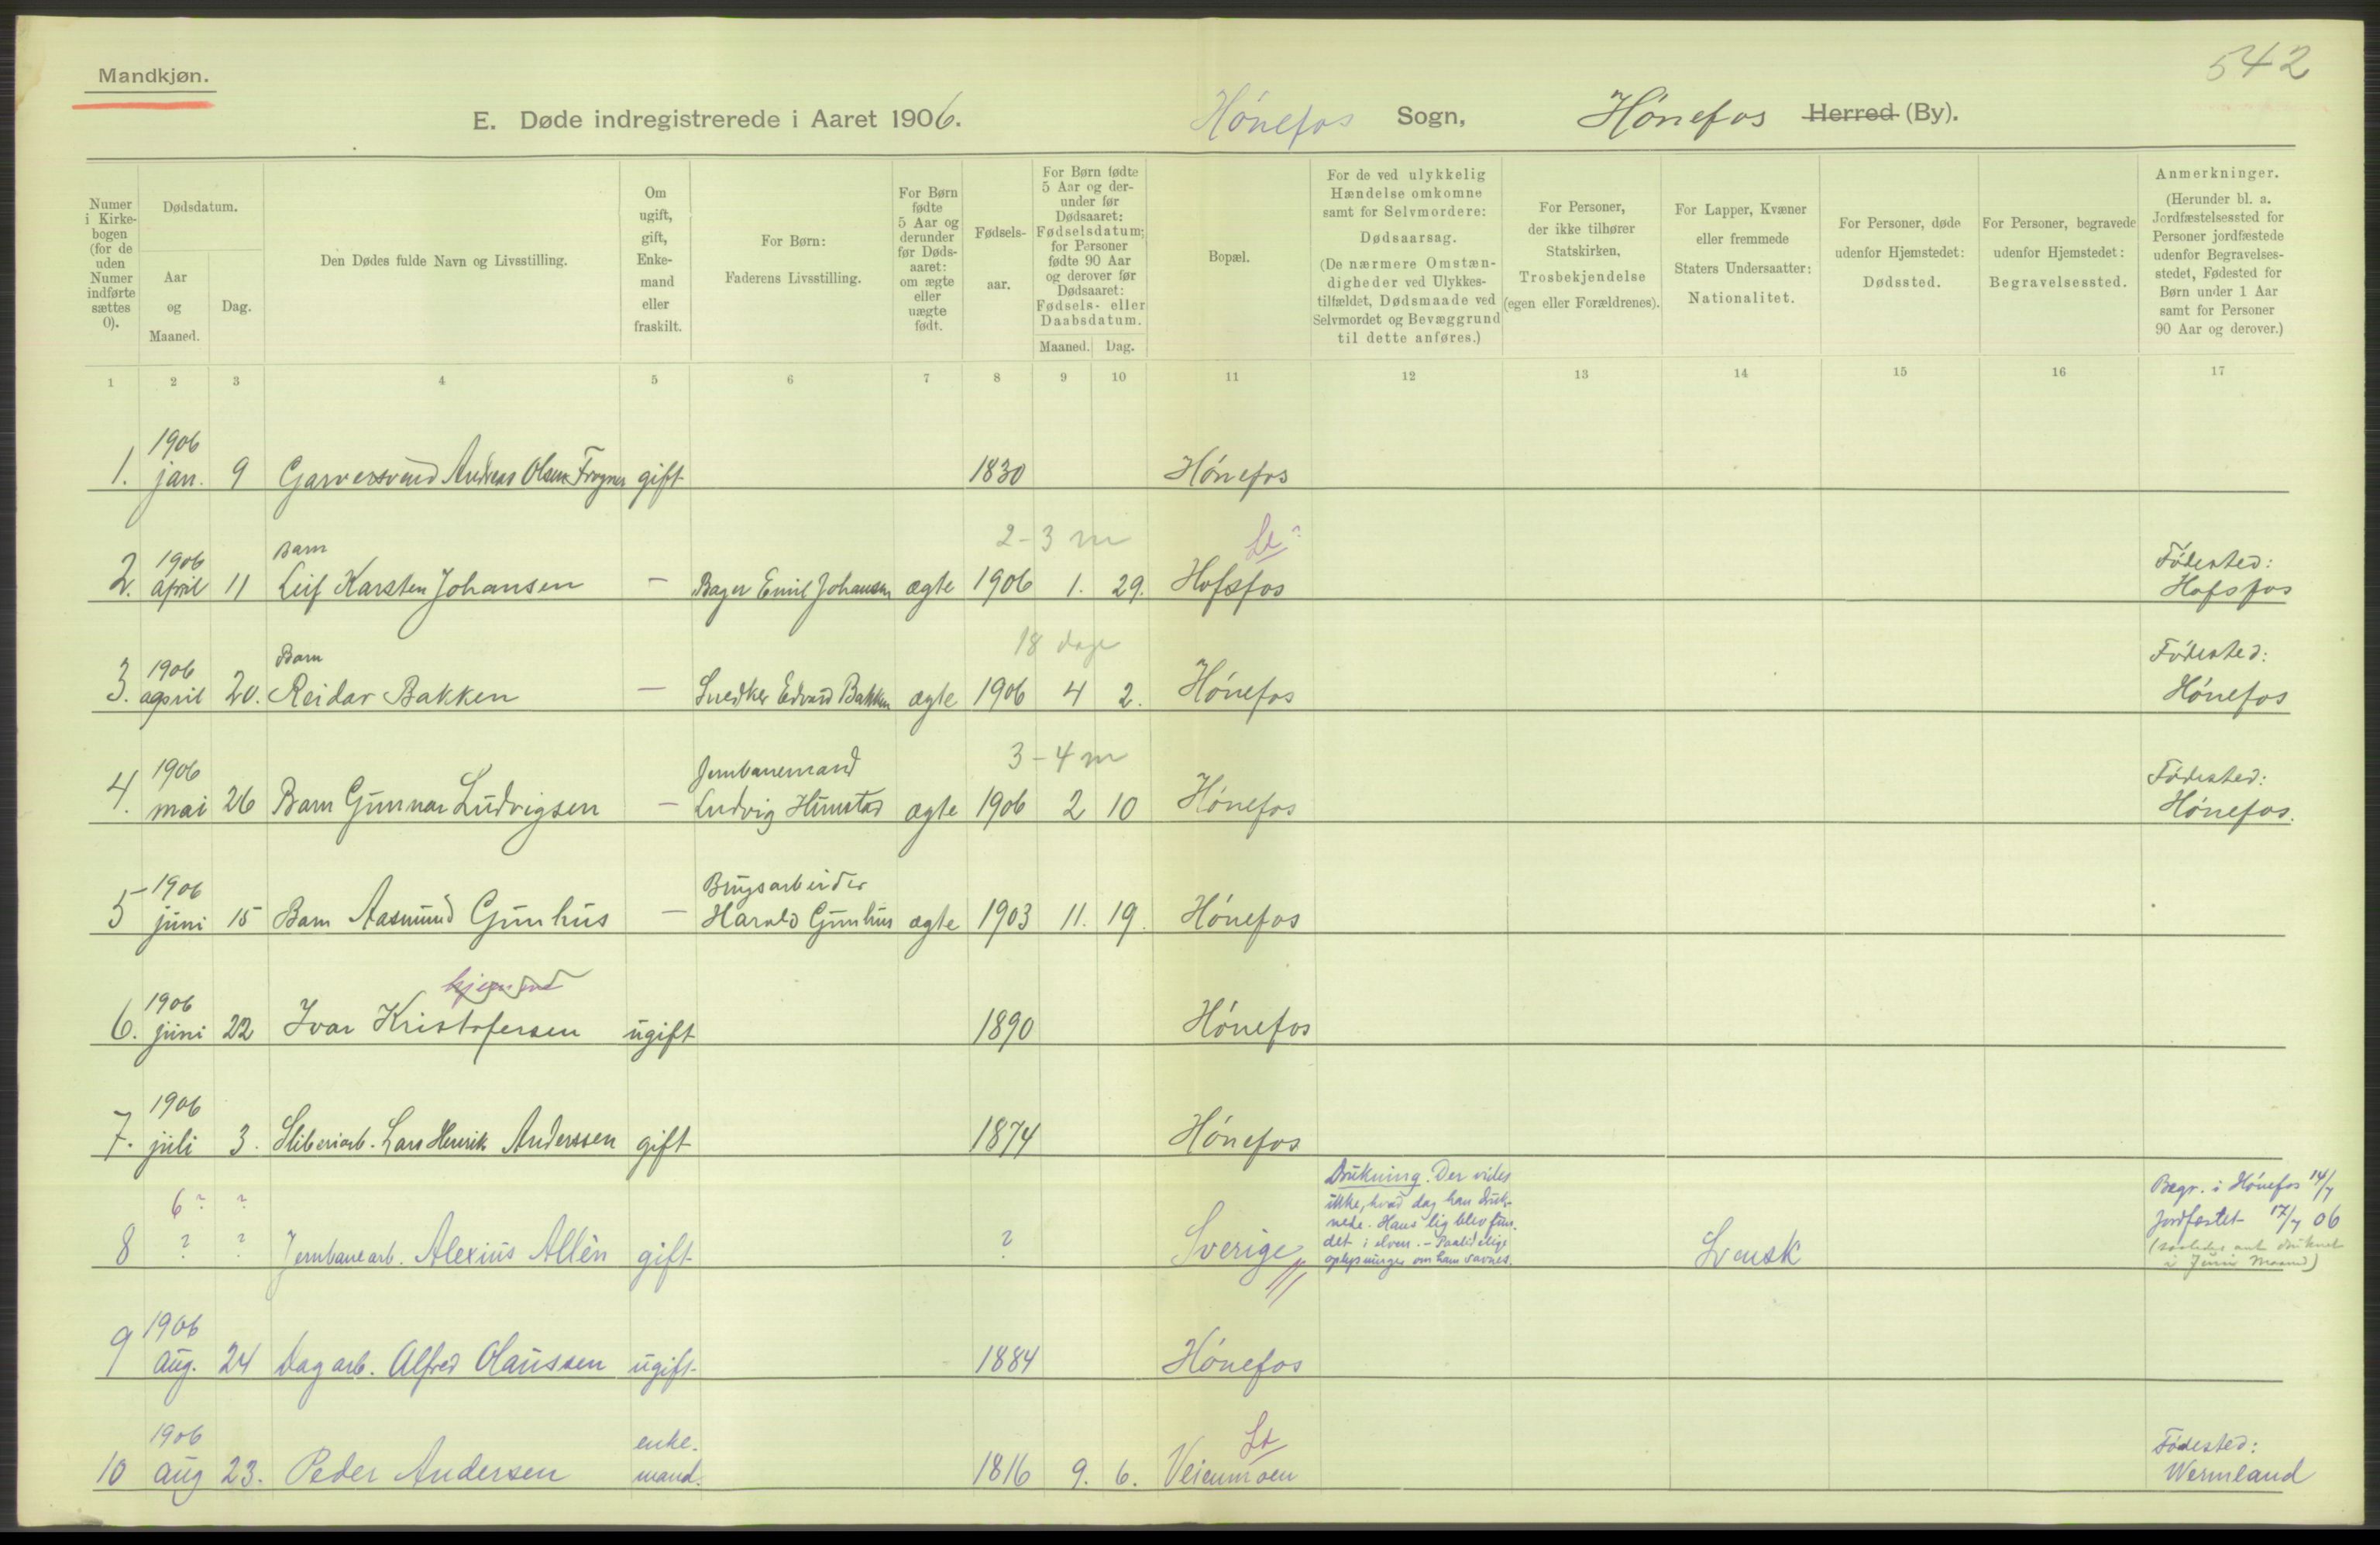 542
Mandkjøn.
E. Døde indregistrerede i Aaret 1906. Hönefos Sogn, Hönefos Herred (By).
Numer i Kirkebogen (for de uden Numer indførte sættes 0).
Dødsdatum.
Aar og Maaned.
Dag.
Den Dødes fulde Navn og Livsstilling.
Om ugift, gift, Enkemand eller fraskilt.
For Børn: Faderens Livsstilling.
For Børn fødte 5 Aar og derunder før Dødsaaret: om ægte eller uægte født.
Fødselsaar.
For Børn fødte 5 Aar og derunder før Dødsaaret: Fødselsdatum; for Personer fødte 90 Aar og derover før Dødsaaret: Fødsels- eller Daabsdatum.
Maaned. Dag.
Bopæl.
For de ved ulykkelig Hændelse omkomne samt for Selvmordere: Dødsaarsag. (De nærmere Omstændigheder ved Ulykkestilfældet, Dødsmaade ved Selvmordet og Bevæggrund til dette anføres.)
For Personer, der ikke tilhører Statskirken, Trosbekjendelse (egen eller Forældrenes).
For Lapper, Kvæner eller fremmede Staters Undersaatter: Nationalitet.
For Personer, døde udenfor Hjemstedet: Dødssted.
For Personer, begravede udenfor Hjemstedet: Begravelsessted.
Anmerkninger. (Herunder bl. a. Jordfæstelsessted for Personer jordfæstede udenfor Begravelsesstedet, Fødested for Børn under 1 Aar samt for Personer 90 Aar og derover.)
1 2 3 4 5 6 7 8 9 10 11 12 13 14 15 16 17
1906
1. jan. 9 Garversvend Andreas Olsen Frogner gift 1830 Hönefos
2-3 m
1906 Barn Födested:
2. april 11 Leif Karsten Johansen - Bager Emil Johansen ægte 1906 1. 29. Hofsfos Hofsfos
18 dage
1906 Barn Födested:
3. april 20. Reidar Bakken - Snedker Edvard Bakken ægte 1906 4 2. Hönefos Hönefos
3-4 m
1906 Jernbanemand Födested:
4. mai 26 Barn Gunnar Ludvigsen - Ludvig Hunstad ægte 1906 2 10 Hönefos Hönefos.
1906 Brugsarbeider
5 juni 15 Barn Aasmund Gunhus - Harald Gunhus ægte 1903 11. 19. Hönefos
1906
6. juni 22 Ivar Kristofersen ugift 1890 Hönefos
1906
7. juli 3. Sliberiarb. Lars Henrik Anderssen gift 1874 Hönefos
6? ?
8 ? ? Jernbanearb. Alexius Allén gift ? Sverige Svensk
Drukning. Der vides
ikke, hvad dag han druk-
nede. Hans lig blev fun-
det i elven. - Paalidelige
oplysninger om ham savnes.
Begr. i Hönefos 14/7
Jordfæstet 17/7 06
(saaledes ant. druknet
i Juni Maaned)
1906
9 aug. 24 Dagarb. Alfred Olaussen ugift 1884 Hönefos
1906 enke- Födested:
10 aug 23. Peder Andersen mand. 1816 9. 6. Veienmoen Wermland